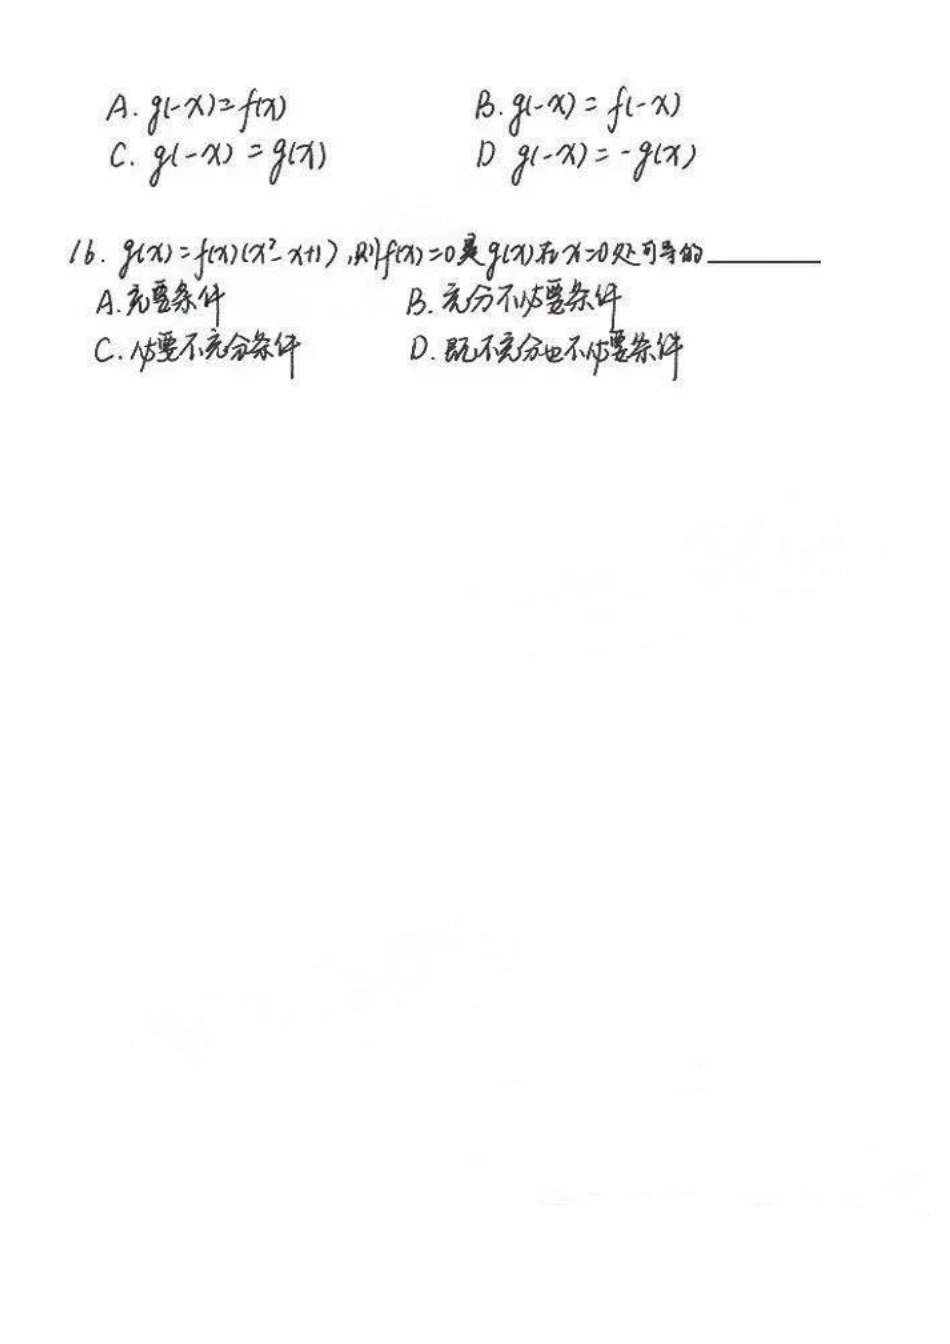 A. g(-x)=f(x) B. g(-x)=f(-x)
C. g(-x)=g(x) D g(-x)=-g(x)
16. g(x)=f(x)(x²-x+1),则f(x)=0是g(x)在x=0处可导的______
A.充要条件 B.充分不必要条件
C.必要不充分条件 D.既不充分也不必要条件